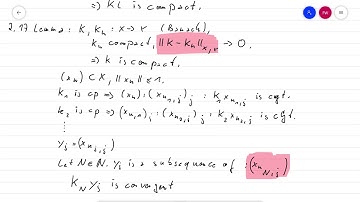 ⇒ KL is compact.
2.17 Lemma: K, Kₙ : X → Y (Banach),
Kₙ compact, ‖K - Kₙ‖ₓ,ᵧ → 0.
⇒ K is compact.
(xₙ) ⊂ X, ‖xₙ‖ ≤ 1.
K₁ is cp ⇒ (xₙ) : (xₙ₁,ⱼ)ⱼ : K₁ xₙ₁,ⱼ is cgt.
K₂ is cp ⇒ (xₙ₁,ⱼ)ⱼ : (xₙ₂,ⱼ)ⱼ : K₂ xₙ₂,ⱼ is cgt.
⋮
yⱼ = (xₙⱼ,ⱼ)
Let N ∈ ℕ. yⱼ is a subsequence of : (xₙ_N,ⱼ)
K_N yⱼ is convergent